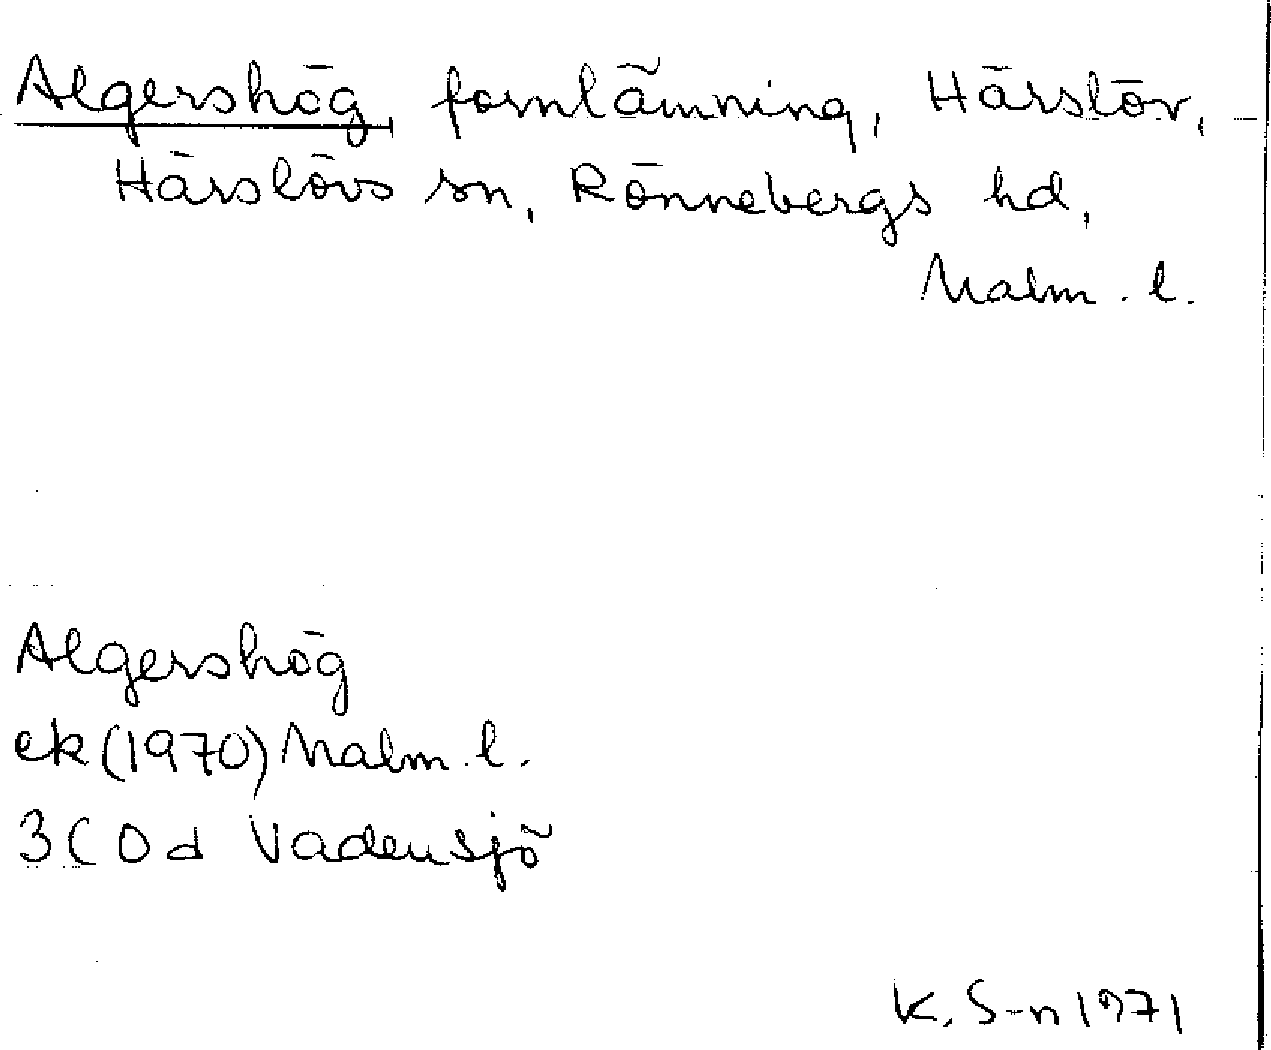 Algershög fornlämning, Härslöv,
Härslövs sn, Rönnebergs hd,
Malm. l.
Algershög
ek (1970) Malm. l.
3C 0d Vadensjö
K. S-n 1971